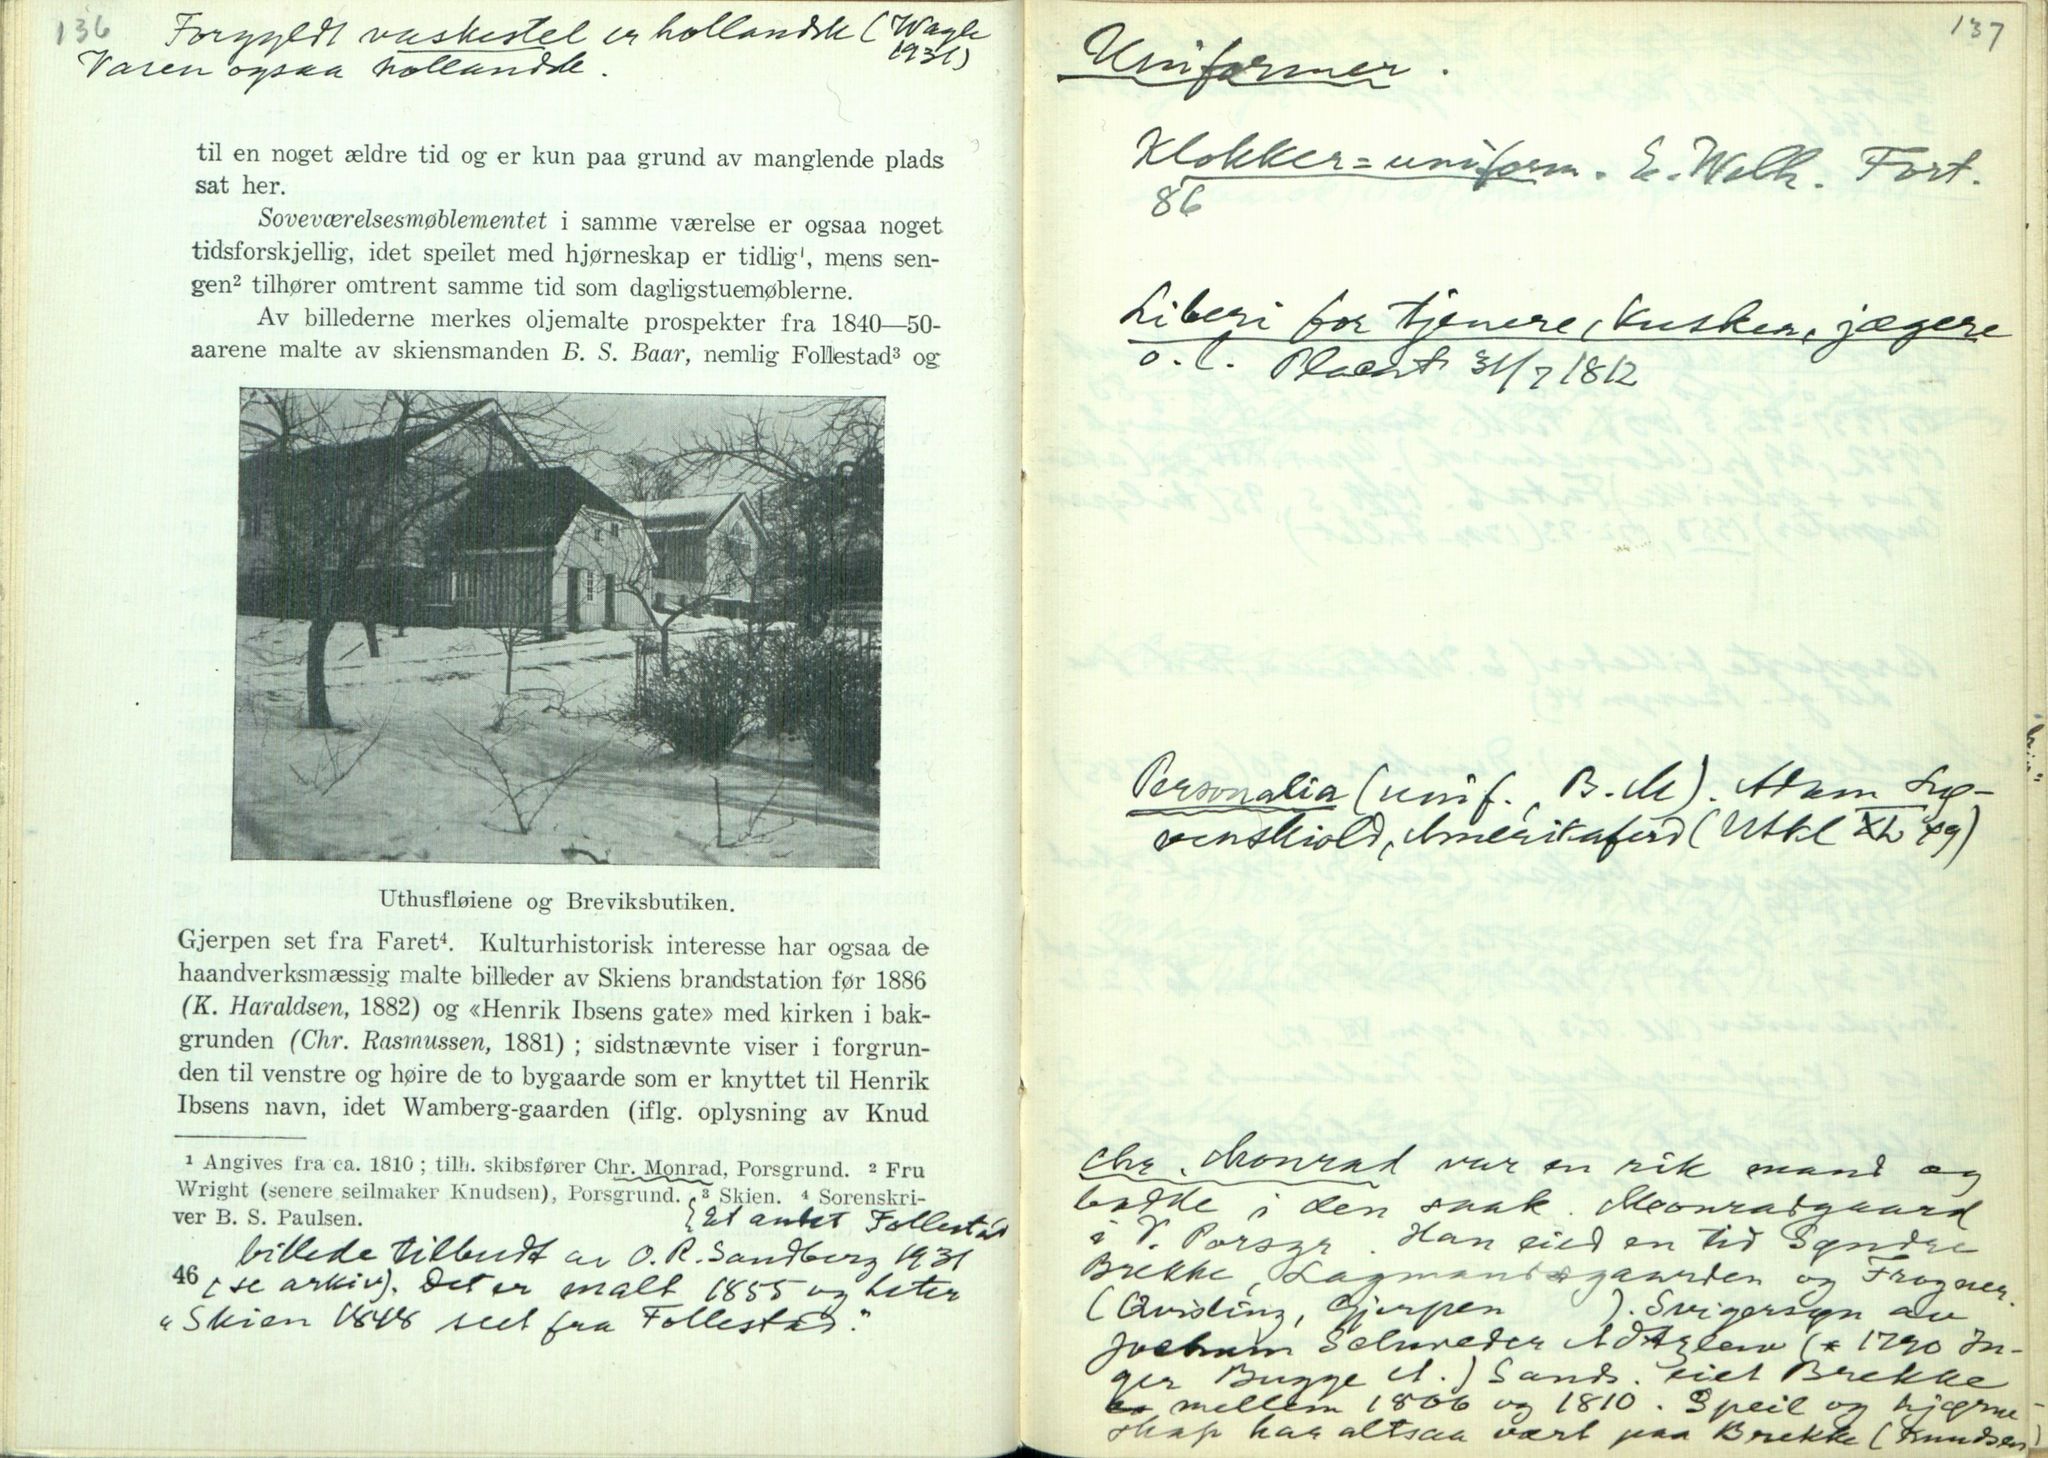 136
Forgyldt vaskestel er hollandsk (Wagle
1931)
Vasen ogsaa hollandsk.
til en noget ældre tid og er kun paa grund av manglende plads
sat her.
Soveværelsesmøblementet i samme værelse er ogsaa noget
tidsforskjellig, idet speilet med hjørneskap er tidlig¹, mens sen-
gen² tilhører omtrent samme tid som dagligstuemøblerne.
Av billederne merkes oljemalte prospekter fra 1840—50-
aarene malte av skiensmanden B. S. Baar, nemlig Follestad³ og
Uthusfløiene og Breviksbutiken.
Gjerpen set fra Faret⁴. Kulturhistorisk interesse har ogsaa de
haandverksmæssig malte billeder av Skiens brandstation før 1886
(K. Haraldsen, 1882) og «Henrik Ibsens gate» med kirken i bak-
grunden (Chr. Rasmussen, 1881) ; sidstnævnte viser i forgrun-
den til venstre og høire de to bygaarde som er knyttet til Henrik
Ibsens navn, idet Wamberg-gaarden (iflg. oplysning av Knud
¹ Angives fra ca. 1810 ; tilh. skibsfører Chr. Monrad, Porsgrund. ² Fru
Wright (senere seilmaker Knudsen), Porsgrund. ³ Skien. ⁴ Sorenskri-
ver B. S. Paulsen.
{Et andet Follestad
billede tilbudt av O. R. Sandberg 1931
46
(se arkiv). Det er malt 1855 og heter
"Skien 1848 seet fra Follestad."
137
Uniformer.
Klokker=uniform. E. Welh. Fort.
86
Liberi for tjenere, kusker, jægere
o. l. Placat 31/7 1812
Personalia (unif., B. M). Adam Løv-
enskiold, Amerikaferd (Utkl
Chr. Monrad var en rik mand og
bodde i den saak. Monradgaard
i V. Porsgr. Han eied en tid Søndre
Brekke, Lagmandsgaarden og Frogner.
(Qvisling, Gjerpen ). Svigersøn av
Jochum Schweder Adtzlew (* 1790 In-
ger Bugge A.) Sands. eiet Brekke
mellem 1806 og 1810. Speil og hjørne-
skap har altsaa vært paa Brekke (Knudsen)